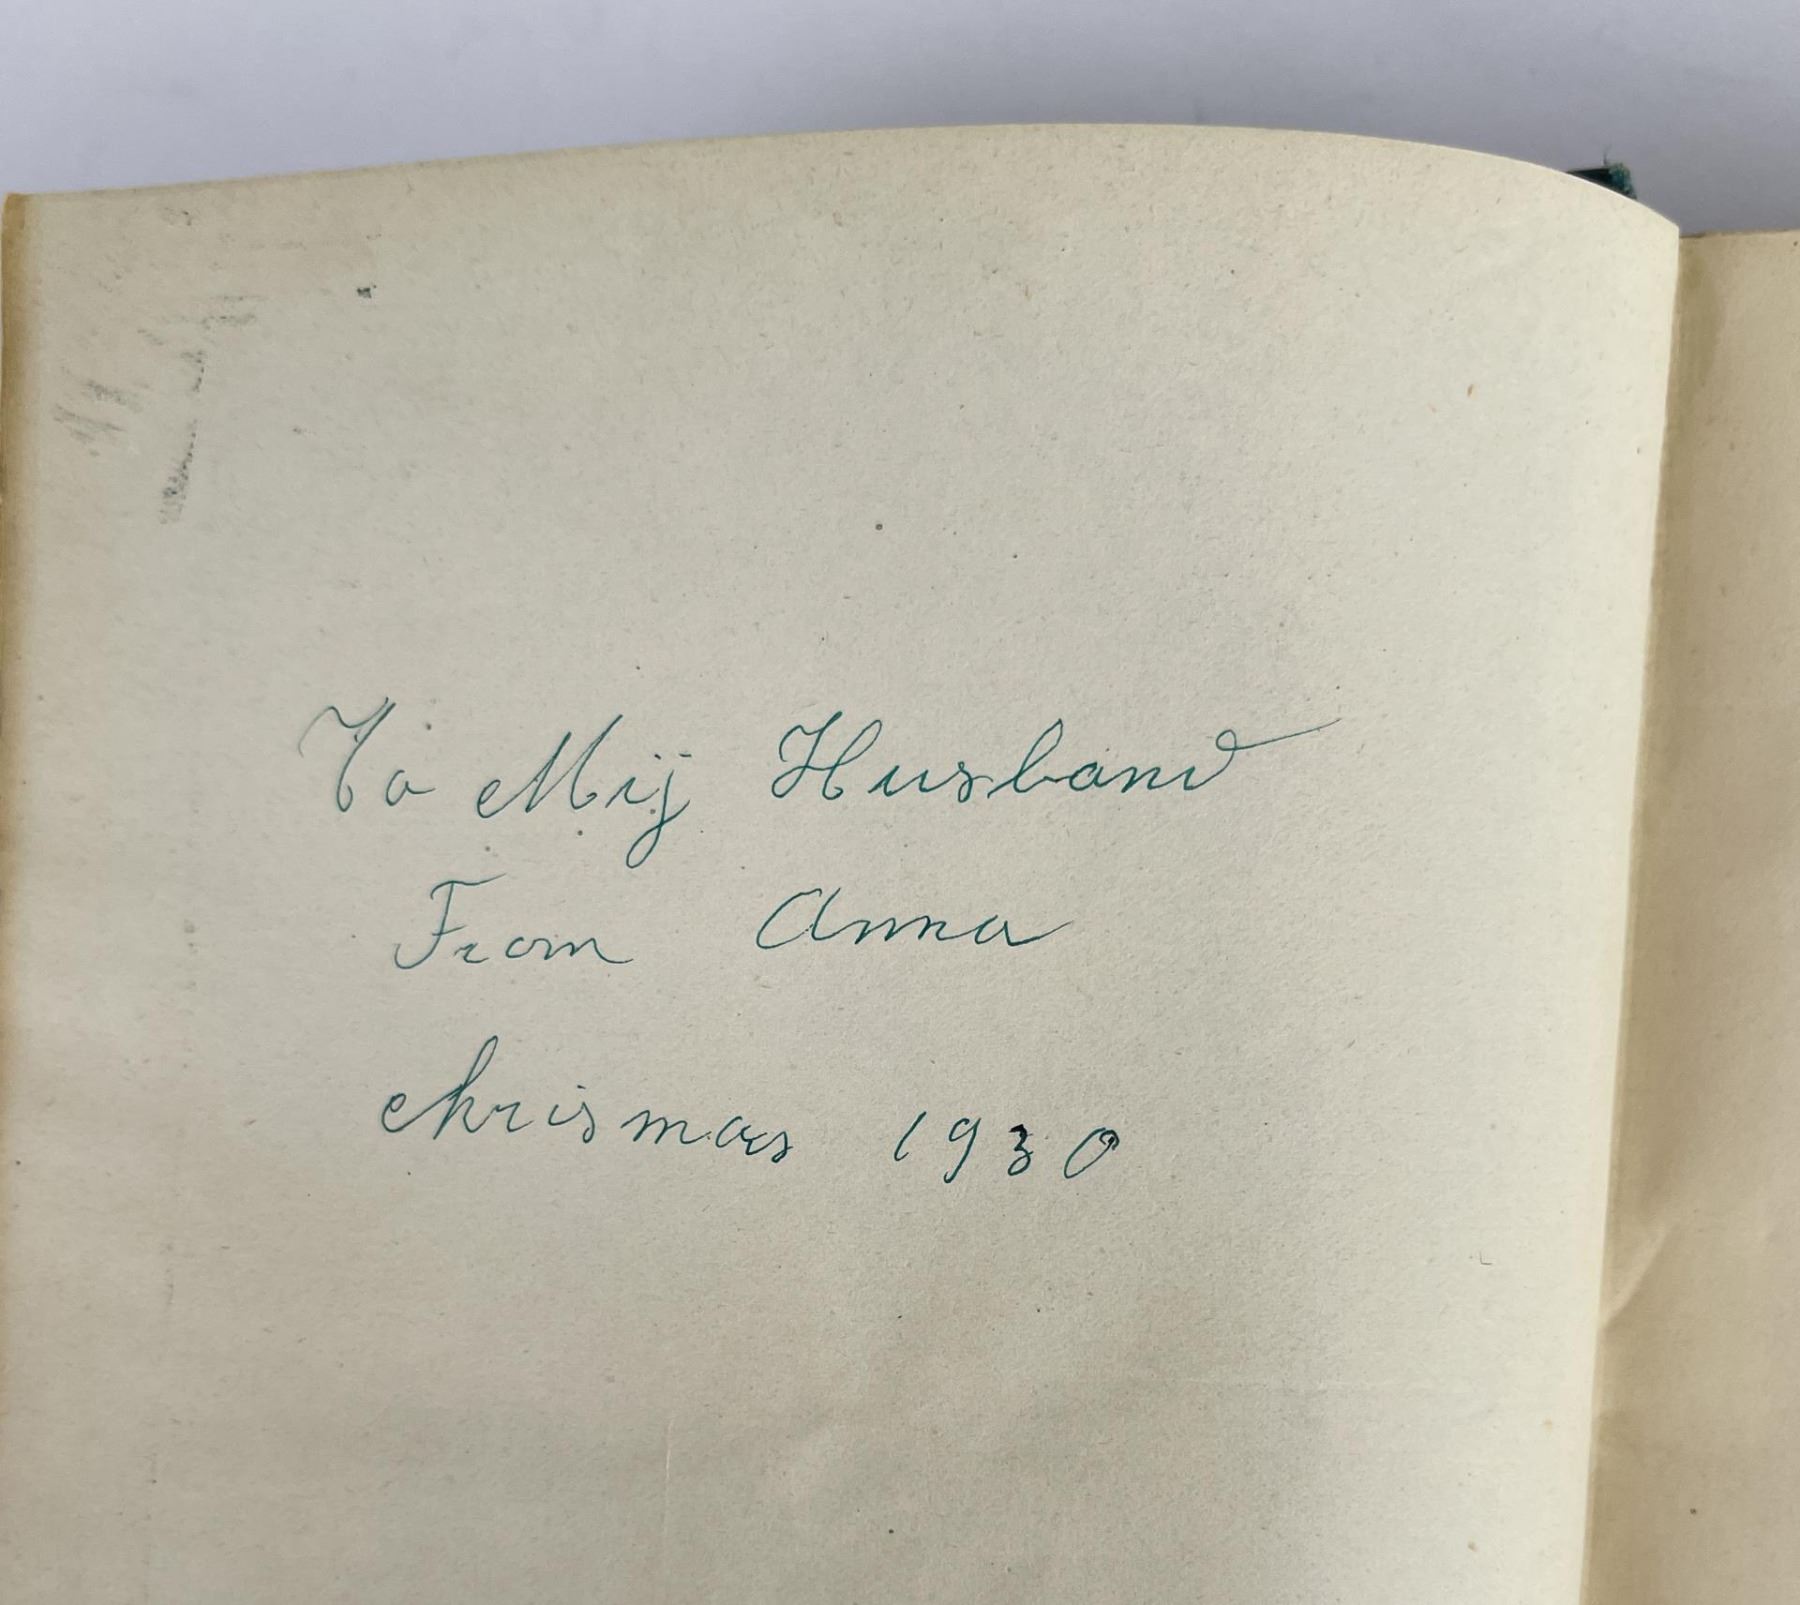 To Mij Husband
From Anna
chrismas 1930